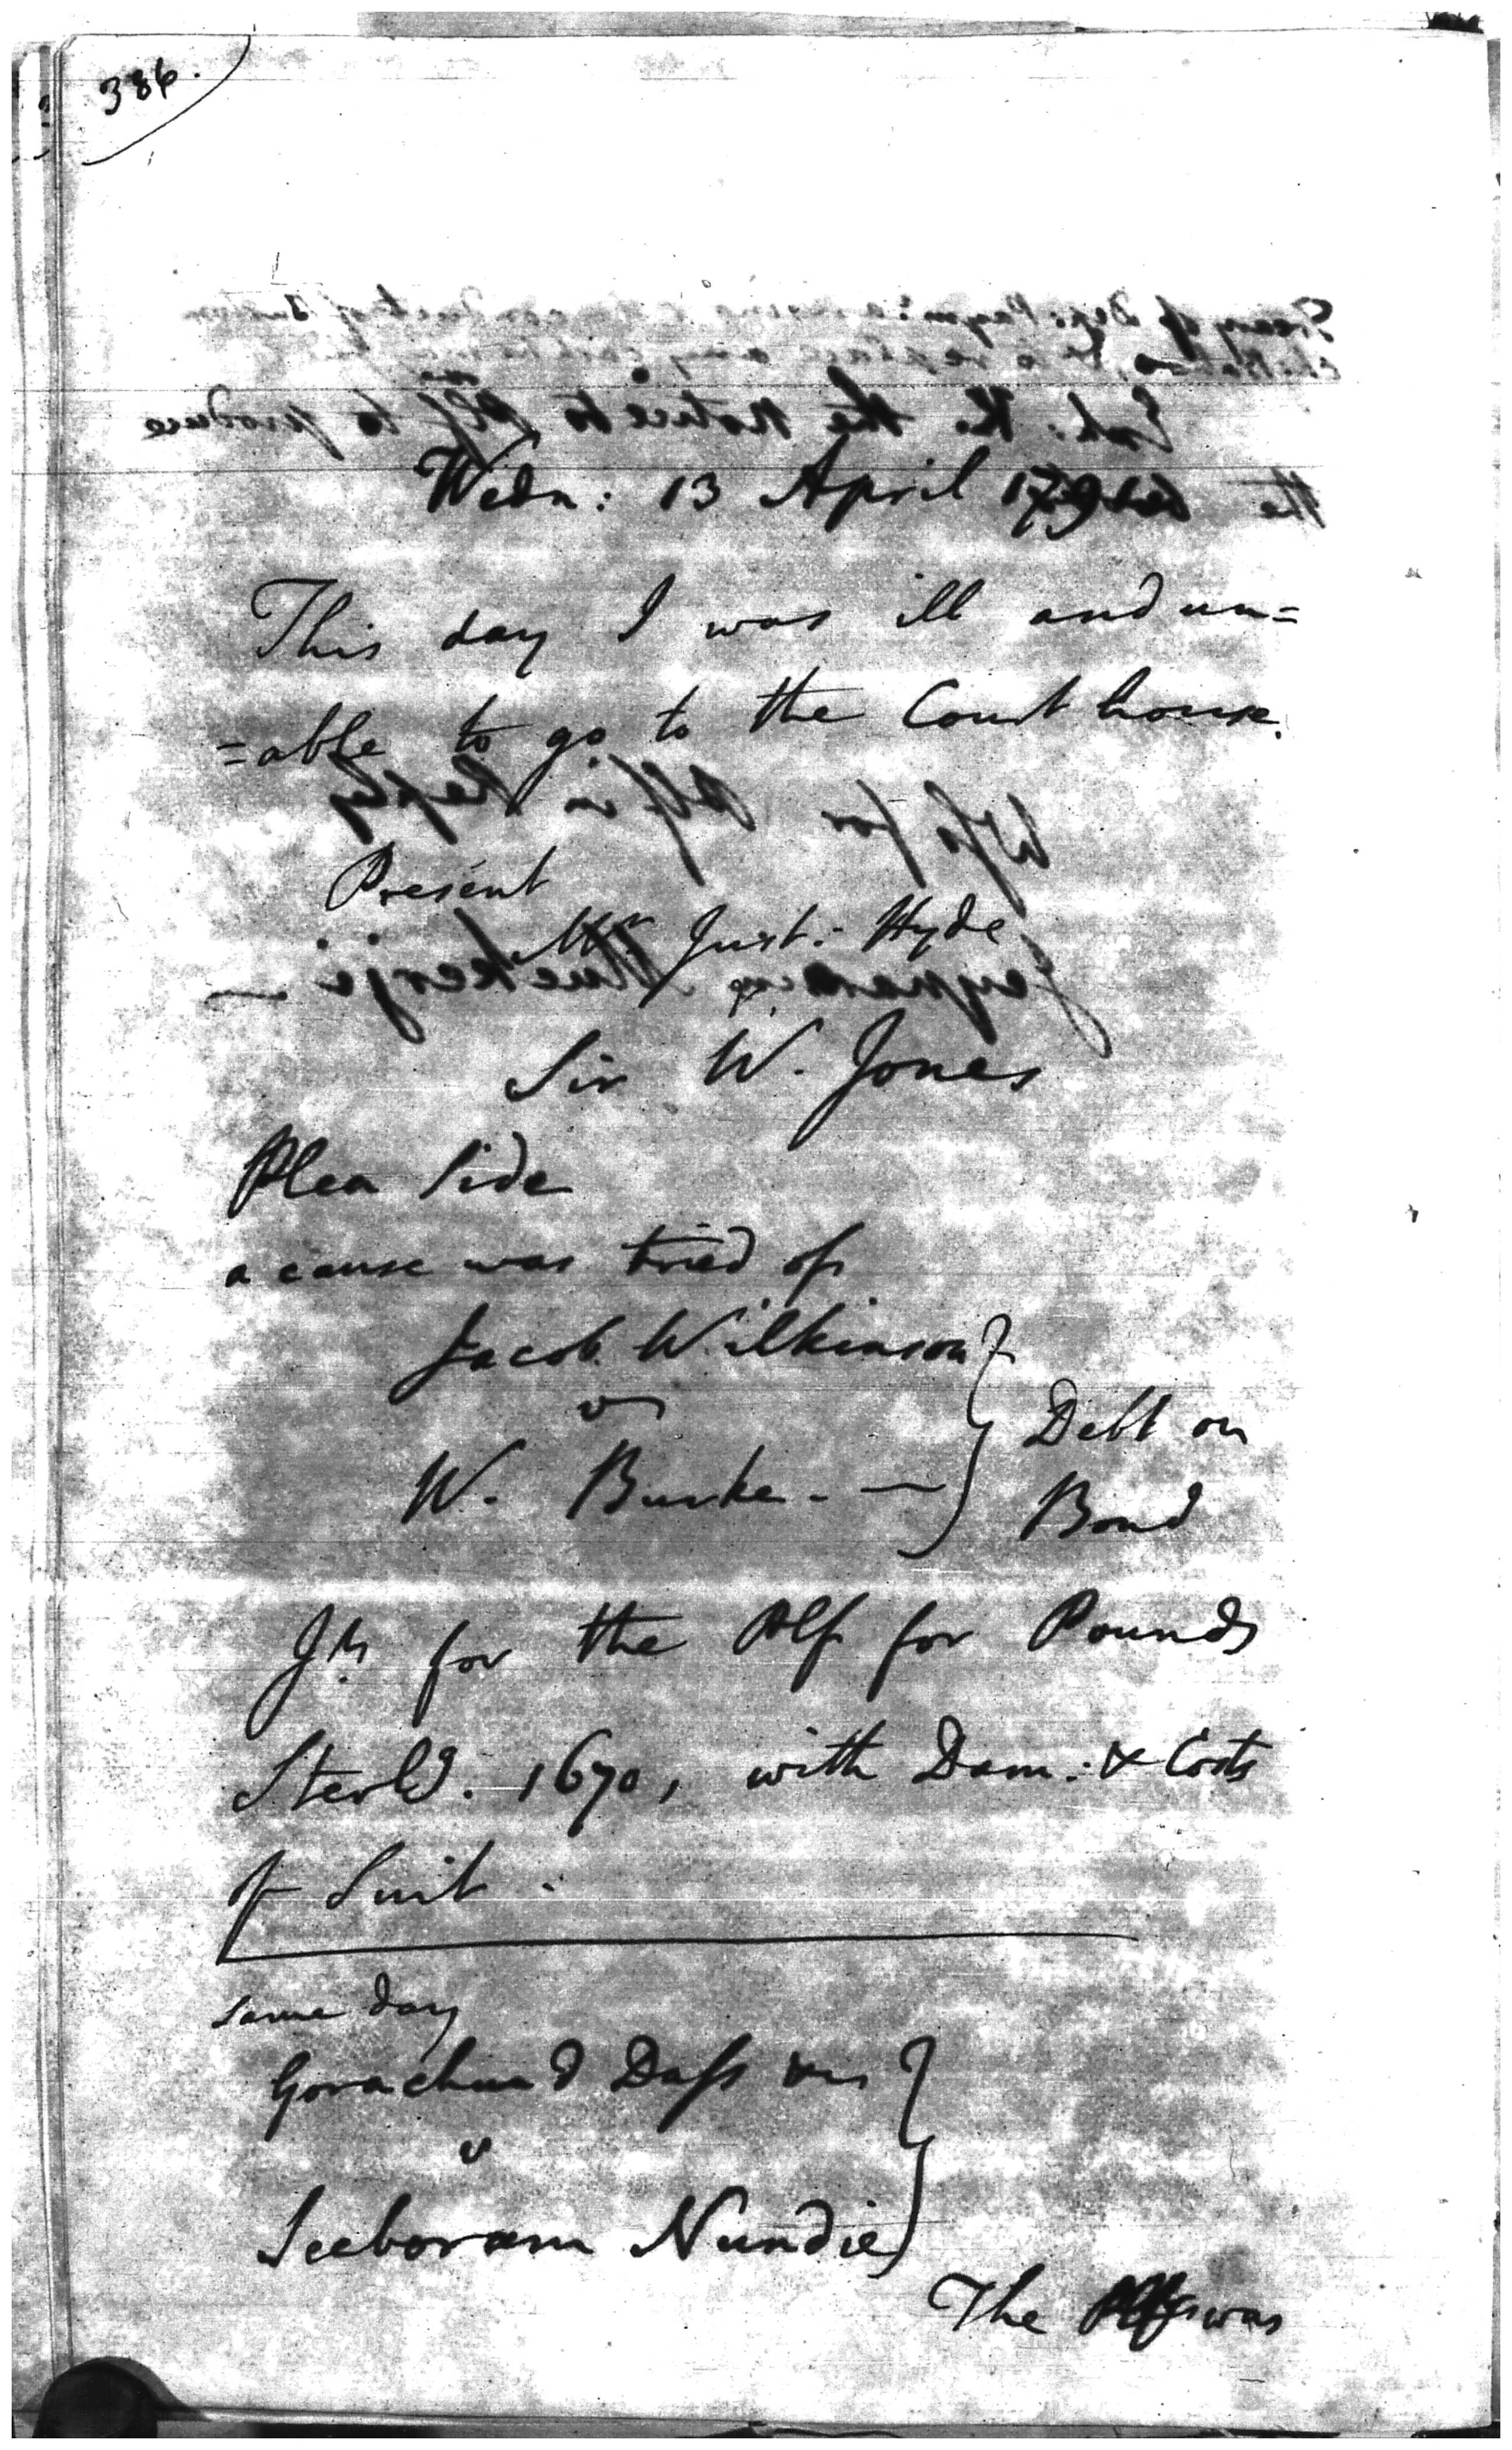 386.
Wedn: 13 April 179
This day I was ill and un=
=able to go to the Court house.
Present
Mr Just: Hyde
Sir W. Jones
Plea Side
a cause was tried of
Jacob Wilkinson
vs
W. Burke. —
Debt on
Bond
Jt for the Plf for Pounds
Sterlg. 1670, with Dam: & Costs
of Suit.
Same day
Gorachund Dass
v
Seeboram Nundie
The Plf was